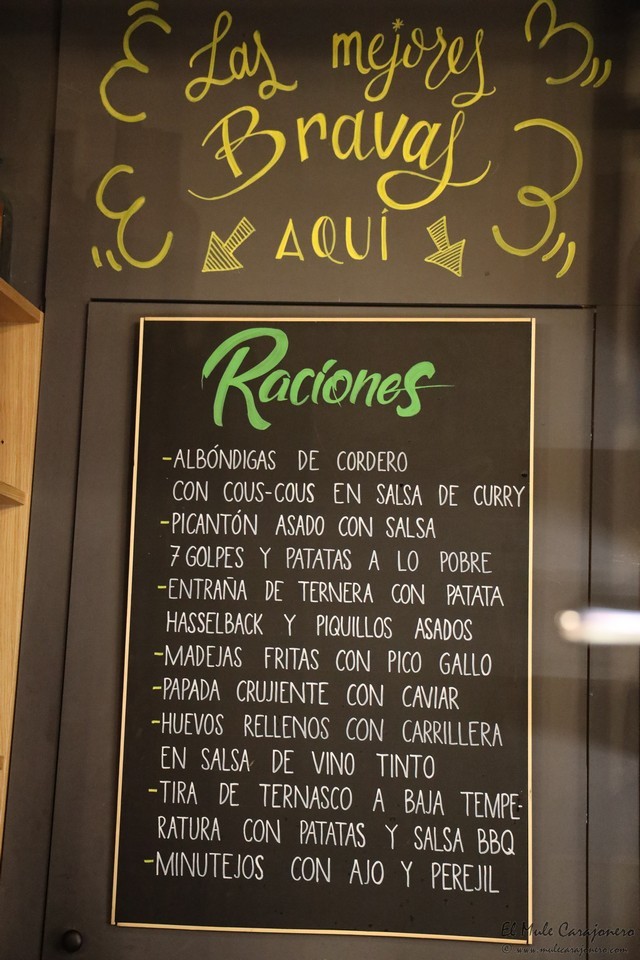 Las mejores
Bravas
AQUÍ
Raciones
-ALBÓNDIGAS DE CORDERO
CON COUS-COUS EN SALSA DE CURRY
-PICANTÓN ASADO CON SALSA
7 GOLPES Y PATATAS A LO POBRE
-ENTRAÑA DE TERNERA CON PATATA
HASSELBACK Y PIQUILLOS ASADOS
-MADEJAS FRITAS CON PICO GALLO
-PAPADA CRUJIENTE CON CAVIAR
-HUEVOS RELLENOS CON CARRILLERA
EN SALSA DE VINO TINTO
-TIRA DE TERNASCO A BAJA TEMPE-
RATURA CON PATATAS Y SALSA BBQ
-MINUTEJOS CON AJO Y PEREJIL
El Mule Carajonero
© www.mulecarajonero.com